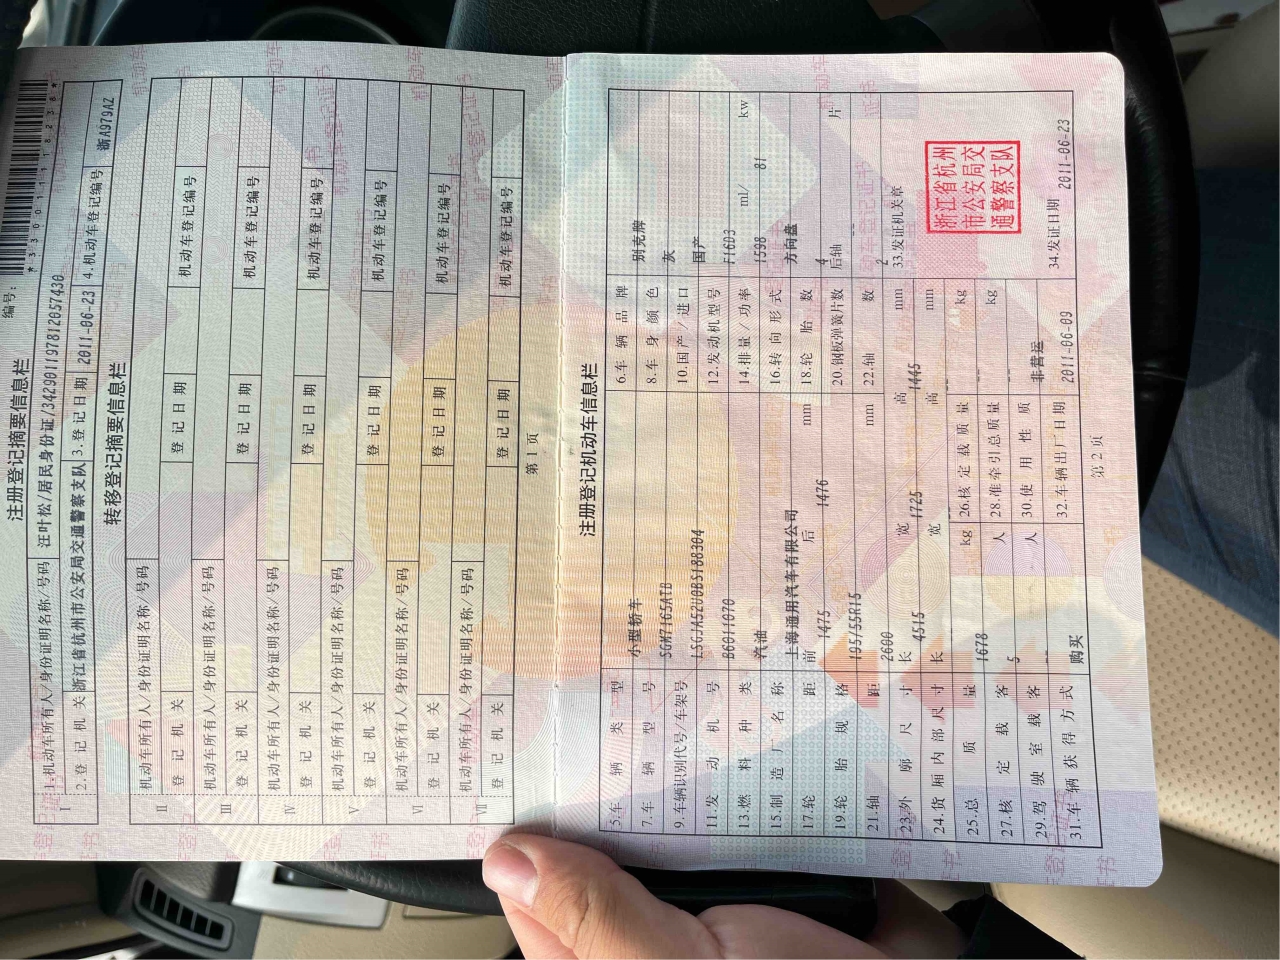 编号：
*330011118238*
注册登记摘要信息栏
I 1.机动车所有人/身份证明名称/号码 汪叶松/居民身份证/342901197812057430
2.登记机关 浙江省杭州市公安局交通警察支队 3.登记日期 2011-06-23 4.机动车登记编号 浙A979AZ
转移登记摘要信息栏
II 机动车所有人/身份证明名称/号码
登记机关 登记日期 机动车登记编号
III 机动车所有人/身份证明名称/号码
登记机关 登记日期 机动车登记编号
IV 机动车所有人/身份证明名称/号码
登记机关 登记日期 机动车登记编号
V 机动车所有人/身份证明名称/号码
登记机关 登记日期 机动车登记编号
VI 机动车所有人/身份证明名称/号码
登记机关 登记日期 机动车登记编号
VII 机动车所有人/身份证明名称/号码
登记机关 登记日期 机动车登记编号
第 1 页
注册登记机动车信息栏
5.车辆类型 小型轿车 6.车辆品牌 别克牌
7.车辆型号 SGM7165ATB 8.车身颜色 灰
9.车辆识别代号/车架号 LSGJA52U0BS188304 10.国产/进口 国产
11.发动机号 B6011070 12.发动机型号 F16D3
13.燃料种类 汽油 14.排量/功率 1598 ml/ 81 kw
15.制造厂名称 上海通用汽车有限公司 16.转向形式 方向盘
17.轮距 前 1475 后 1476 mm 18.轮胎数 4
19.轮胎规格 195/55R15 20.钢板弹簧片数 后轴 -- 片
21.轴距 2600 mm 22.轴数 2
23.外廓尺寸 长 4515 宽 1725 高 1445 mm 33.发证机关章
24.货厢内部尺寸 长 宽 高 mm
浙江省杭州市公安局交通警察支队
25.总质量 1678 kg 26.核定载质量 -- kg
27.核定载客 5 人 28.准牵引总质量 -- kg
29.驾驶室载客 -- 人 30.使用性质 非营运
31.车辆获得方式 购买 32.车辆出厂日期 2011-06-09 34.发证日期 2011-06-23
第 2 页